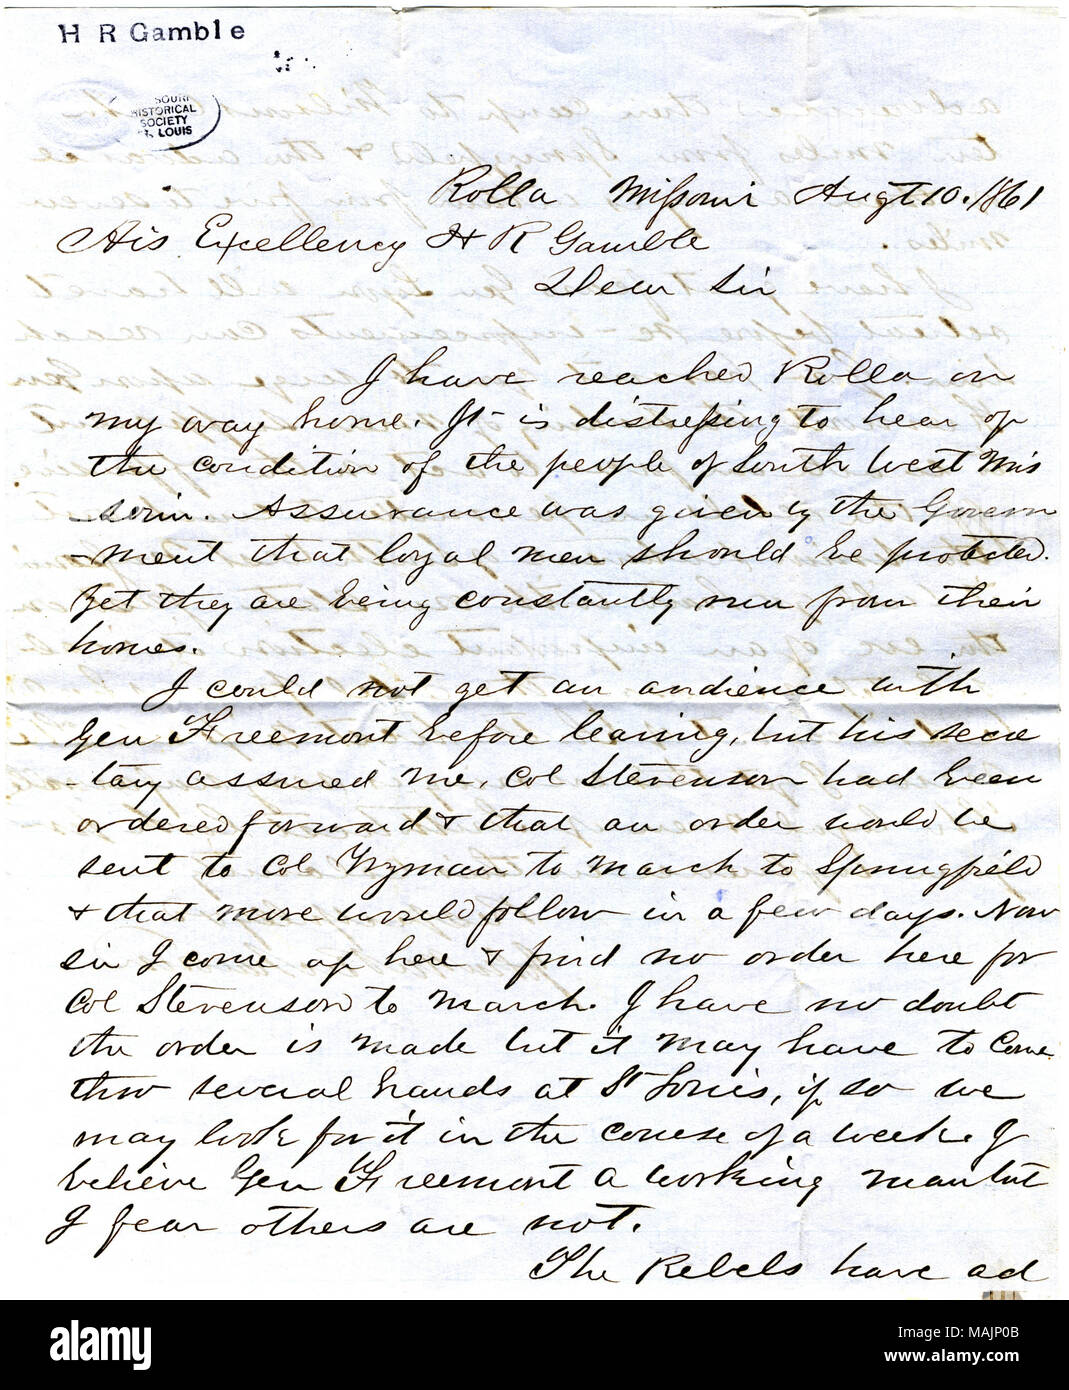 H R Gamble
SOURI
HISTORICAL
SOCIETY
LOUIS
Rolla Missouri Augt 10. 1861
His Excellency H R Gamble
Dear Sir
I have reached Rolla on
my way home. It is distressing to hear of
the condition of the people of South West Mis
-souri. Assurance was given by the Govern
-ment that loyal men should be protected.
Yet they are being constantly run from their
homes.
I could not get an audience with
Gen Freemont before leaving, but his secre
-tary assured me, Col Stevenson had been
ordered forward & that an order would be
sent to Col Wyman to march to Springfield
& that more would follow in a few days. Now
sir I come up here & find no order here for
Col Stevenson to march. I have no doubt
the order is made but it may have to come
thro several hands at St Louis, if so we
may look for it in the course of a week. I
believe Gen Freemont a working man but
I fear others are not.
The Rebels have ad
alamy
Image ID: MAJP0B
www.alamy.com